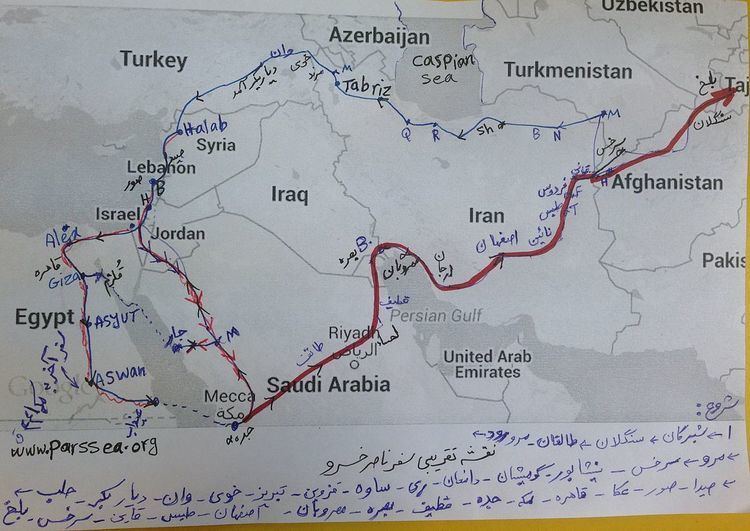 Uzbekistan
Azerbaijan
Turkey
وان
خوی
مرند
M
Caspian
sea
Turkmenistan
بلخ
Taj
دیاربکر آمد
Tabriz
سنگلان
Halab
Q
R
Sh
B
N
M
سرخس
Syria
صیدا
Lebanon
صور
B
H
Afghanistan
Iraq
Iran
فردوس
طبس
T
نائین
اصفهان
Israel
Jordan
Alex
قاهره
Giza
قلزم
بصره
B.
مهروبان
ارجان
Pakis
Egypt
ASYUT
جار
M
قطیف
Persian Gulf
لحساء
Riyadh
الرياض
طائف
United Arab
Emirates
ASWAN
Saudi Arabia
Mecca
مكة
جده
www.parssea.org
شروع:
۱- شبرگان - سنگلان - طالقان - مرورود
نقشه تقریبی سفر ناصر خسرو
- مرو - سرخس - نیشاپور - گومیشان - دامغان - ری - ساوه - قزوین - تبریز - خوی - وان - دیار بکر - حلب -
- صیدا - صور - عکا - قاهره - مکه - جده - قطیف - بصره - مهروبان - اصفهان - طبس - قاین - سرخس - بلخ